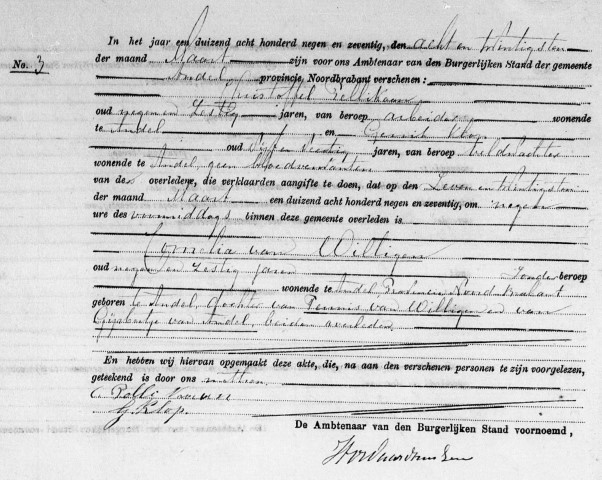 In het jaar een duizend acht honderd negen en zeventig, den acht en twintigsten
der maand Maart zijn voor ons Ambtenaar van den Burgerlijken Stand der gemeente
No. 3
Andel provincie Noordbrabant verschenen:
oud negen en zestig jaren, van beroep arbeider wonende
te Andel en Gerrit Klop
oud vijf en veertig jaren, van beroep veldwachter
wonende te Andel geen bloedverwanten
van de overledene, die verklaarden aangifte te doen, dat op den Zeven en twintigsten
der maand Maart een duizend acht honderd negen en zeventig, om negen
ure des voormiddags binnen deze gemeente overleden is
Cornelia van Willigen
oud negen en zestig jaren zonder beroep
wonende te Andel Noord Brabant
geboren te Andel dochter van Teunis van Willigen en van
Gijsbertje van Andel, beiden overleden
En hebben wij hiervan opgemaakt deze akte, die, na aan den verschenen personen te zijn voorgelezen,
geteekend is door ons met hen
G. Klop
De Ambtenaar van den Burgerlijken Stand voornoemd,